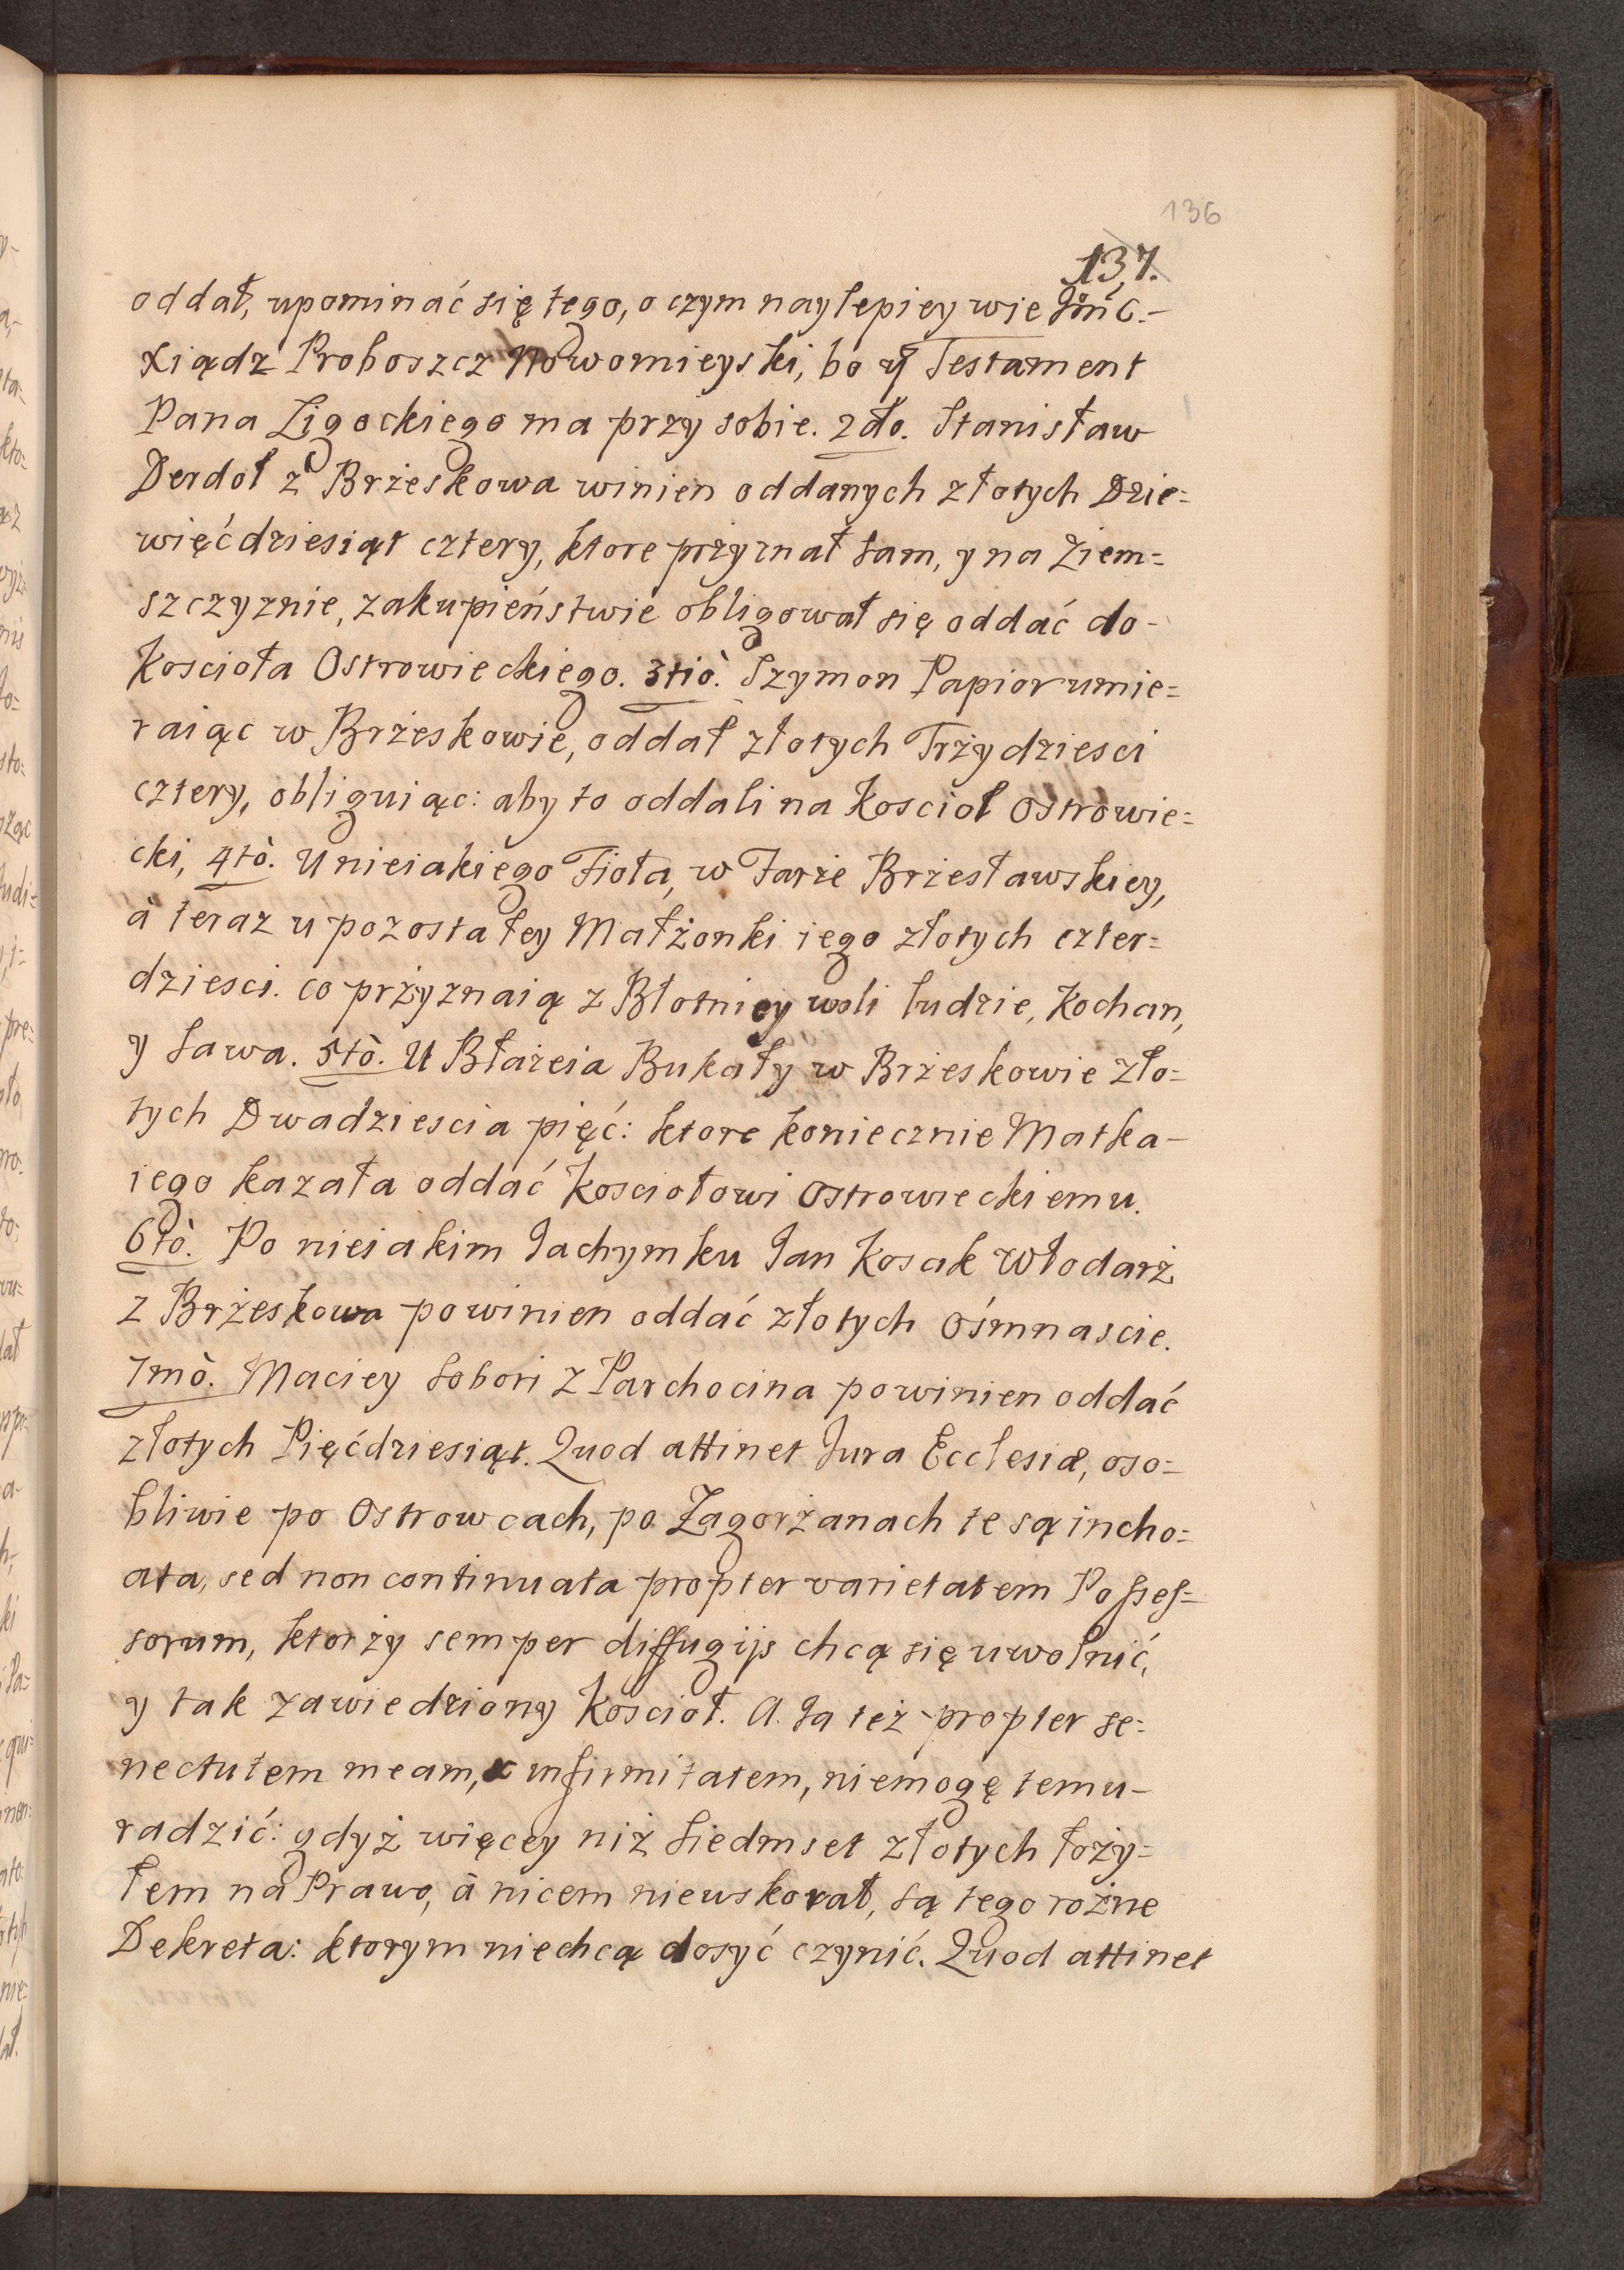 136
137.
oddał, upominać się tego, o czym naylepiey wie Jmć.-
Xiądz Proboszcz Nowomieyski, bo y Testament
Pana Ligockiego ma przy sobie. 2do. Stanisław
Derdol z Brżeskowa winien oddanych złotych Dzie=
więćdziesiąt cztery, ktore prżyznał sam, y na Ziem=
szczyznie, zakupieństwie obligował się oddać do-
Koscioła Ostrowieckiego. 3tiò. Szymon Papior umie=
raiąc w Brżeskowie, oddał złotych Trżydziesci
cztery, obliguiąc: aby to oddali na Kosciol Ostrowie=
cki, 4tò. U nieiakiego Fioła, w Farże Brżesławskiey,
à teraz u pozostałey Małżonki iego złotych czter=
dziesci. co prżyznaią z Błotniey woli ludzie, Kochan,
y Sawa. 5tò. U Błażeia Bukały w Brżeskowie zło=
tych Dwadziescia pięć: ktore koniecznie Matka-
iego kazała oddać Kosciołowi Ostrowieckiemu.
6tò. Po nieiakim Jachymku Jan Kosak Włodarż
z Brżeskowa powinien oddać złotych Ośmnascie.
7mò. Maciey Sobori z Parchocina powinien oddać
złotych Pięćdziesiąt. Quod attinet Jura Ecclesiæ, oso=
bliwie po Ostrowcach, po Zagorżanach te są incho=
ata, sed non continuata propter varietatem Posses=
sorum, ktorży semper diffugijs chcą się uwolnić,
y tak zawiedziony Kościoł. A Ja też propter se=
nectutem meam, & infirmitatem, niemogę temu-
radzić: gdyż więcey niż Siedmset złotych łoży=
łem na Prawo, à nicem niewskorał, są tego rożne
Dekreta: ktorym niechcą dosyć czynić. Quod attinet